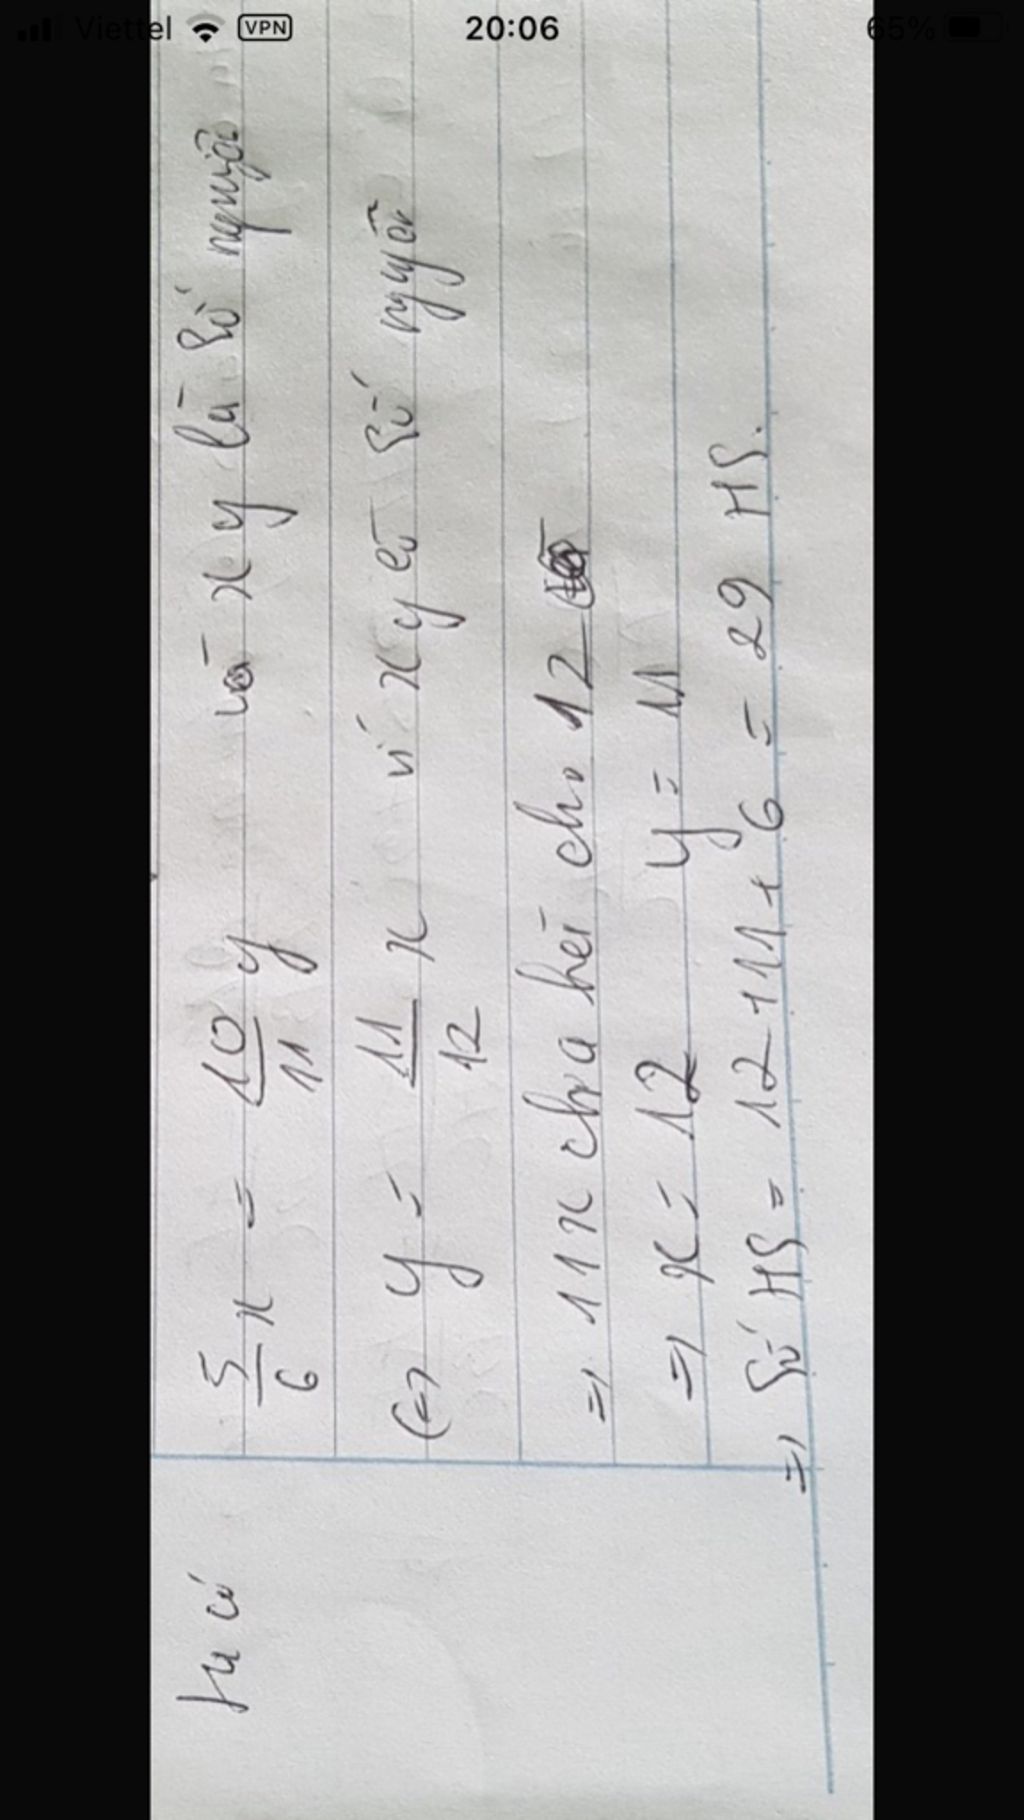 Viettel VPN 20:06 65%
Ta có 5/6 x = 10/11 y và x y là số nguyên
(=) y = 11/12 x vì x y là số nguyên
=> 11x chia hết cho 12
=> x = 12 y = 11
=> Số HS = 12 + 11 + 6 = 29 HS.